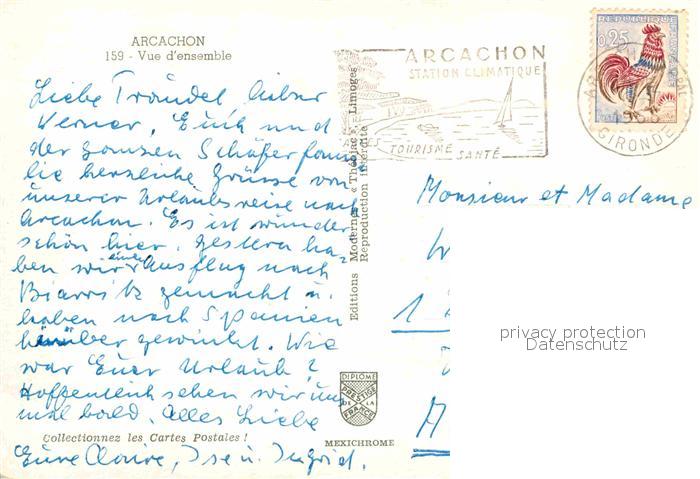 ARCACHON
159 - Vue d'ensemble
Liebe Traudel lieber
Werner, Euch und
der ganzen Schäferfami
lie herzliche Grüsse von
unserer Urlaubsreise nach
Arcachon. Es ist wunder
schön hier, gestern ha-
ben wir einen Ausflug nach
Biarritz gemacht u.
haben nach Spanien
hinüber gewinkt. Wie
war Euer Urlaub?
Hoffentlich sehen wir uns
mal bald. Alles Liebe
Collectionnez les Cartes Postales !
Eure Claire, Ise u. Ingrid.
Editions Modernes « Théojac » - Limoges
Reproduction interdite
DIPLOME
PRESTIGE
DE LA
FRANCE
MEXICHROME
ARCACHON
STATION CLIMATIQUE
TOURISME
SANTÉ
REPUBLIQUE
0,25
GIRONDE
Monsieur et Madame
1
privacy protection
Datenschutz